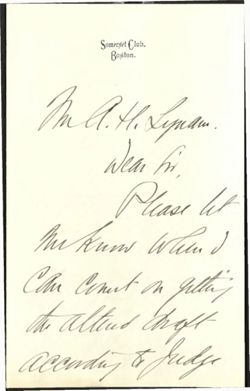 Somerset Club,
Boston.
Mr A. H. Lynam.
Dear Sir,
Please let
me know when I
can count on getting
the altered draft
according to Judge